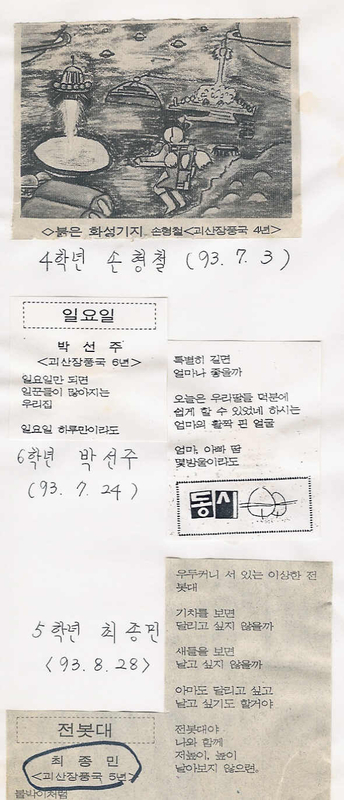 ◇붉은 화성기지 손형철<괴산장풍국 4년>
4학년 손형철 (93. 7. 3)
일요일
박선주
<괴산장풍국 6년>
일요일만 되면
일꾼들이 많아지는
우리집
일요일 하루만이라도
6학년 박선주
(93. 7. 24)
특별히 길면
얼마나 좋을까
오늘은 우리땀들 덕분에
쉽게 할 수 있었네 하시는
엄마의 활짝 핀 얼굴
엄마, 아빠 땀
몇방울이라도
동시
5학년 최종민
<93. 8. 28>
전봇대
최종민
<괴산장풍국 5년>
붙박이처럼
우두커니 서 있는 이상한 전
봇대
기차를 보면
달리고 싶지 않을까
새들을 보면
날고 싶지 않을까
아마도 달리고 싶고
날고 싶기도 할거야
전봇대야
나와 함께
저높이, 높이
날아보지 않으련.